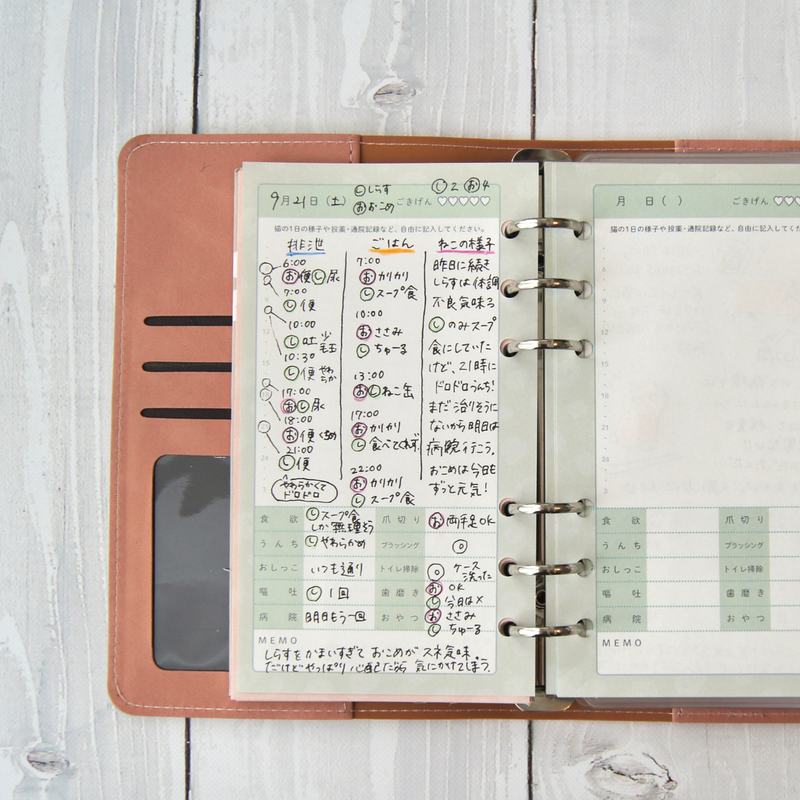 9月21日(土)
し しらす
お おこめ
し2 お4
ごきげん ♡♡♡♡♡
猫の1日の様子や投薬・通院記録など、自由に記入してください。
排泄
6:00
お便 し尿
7:00
し便
10:00
し吐 少 毛玉
10:30
し便 やわらか
17:00
おし尿
18:00
お便
21:00
し便
やわらかくて
ドロドロ
ごはん
7:00
おカリカリ
しスープ食
10:00
おささみ
しちゅーる
13:00
おしねこ缶
17:00
おカリカリ
し食べてくれず
22:00
おカリカリ
しスープ食
ねこの様子
昨日に続き
しらすは体調
不良気味
しのみスープ
食にしていた
けど、21時に
ドロドロうんち!
まだ治りそうに
ないから明日は
病院行こう。
おこめは今日も
ずっと元気!
食欲
しスープ食
しか無理そう
爪切り
お両手足OK
うんち
しやわらかめ
ブラッシング
◎
おしっこ
いつも通り
トイレ掃除
◎ケース
洗った
嘔吐
し1回
歯磨き
おOK
し今日は×
病院
明日もう一回
おやつ
おささみ
しちゅーる
MEMO
しらすをかまいすぎておこめがスネ気味。
だけどやっぱり心配だから気にかけてしまう。
月 日( )
ごきげん ♡♡
猫の1日の様子や投薬・通院記録など、自由に記入してくだ
食欲
爪切り
うんち
ブラッシング
おしっこ
トイレ掃除
嘔吐
歯磨き
病院
おやつ
MEMO